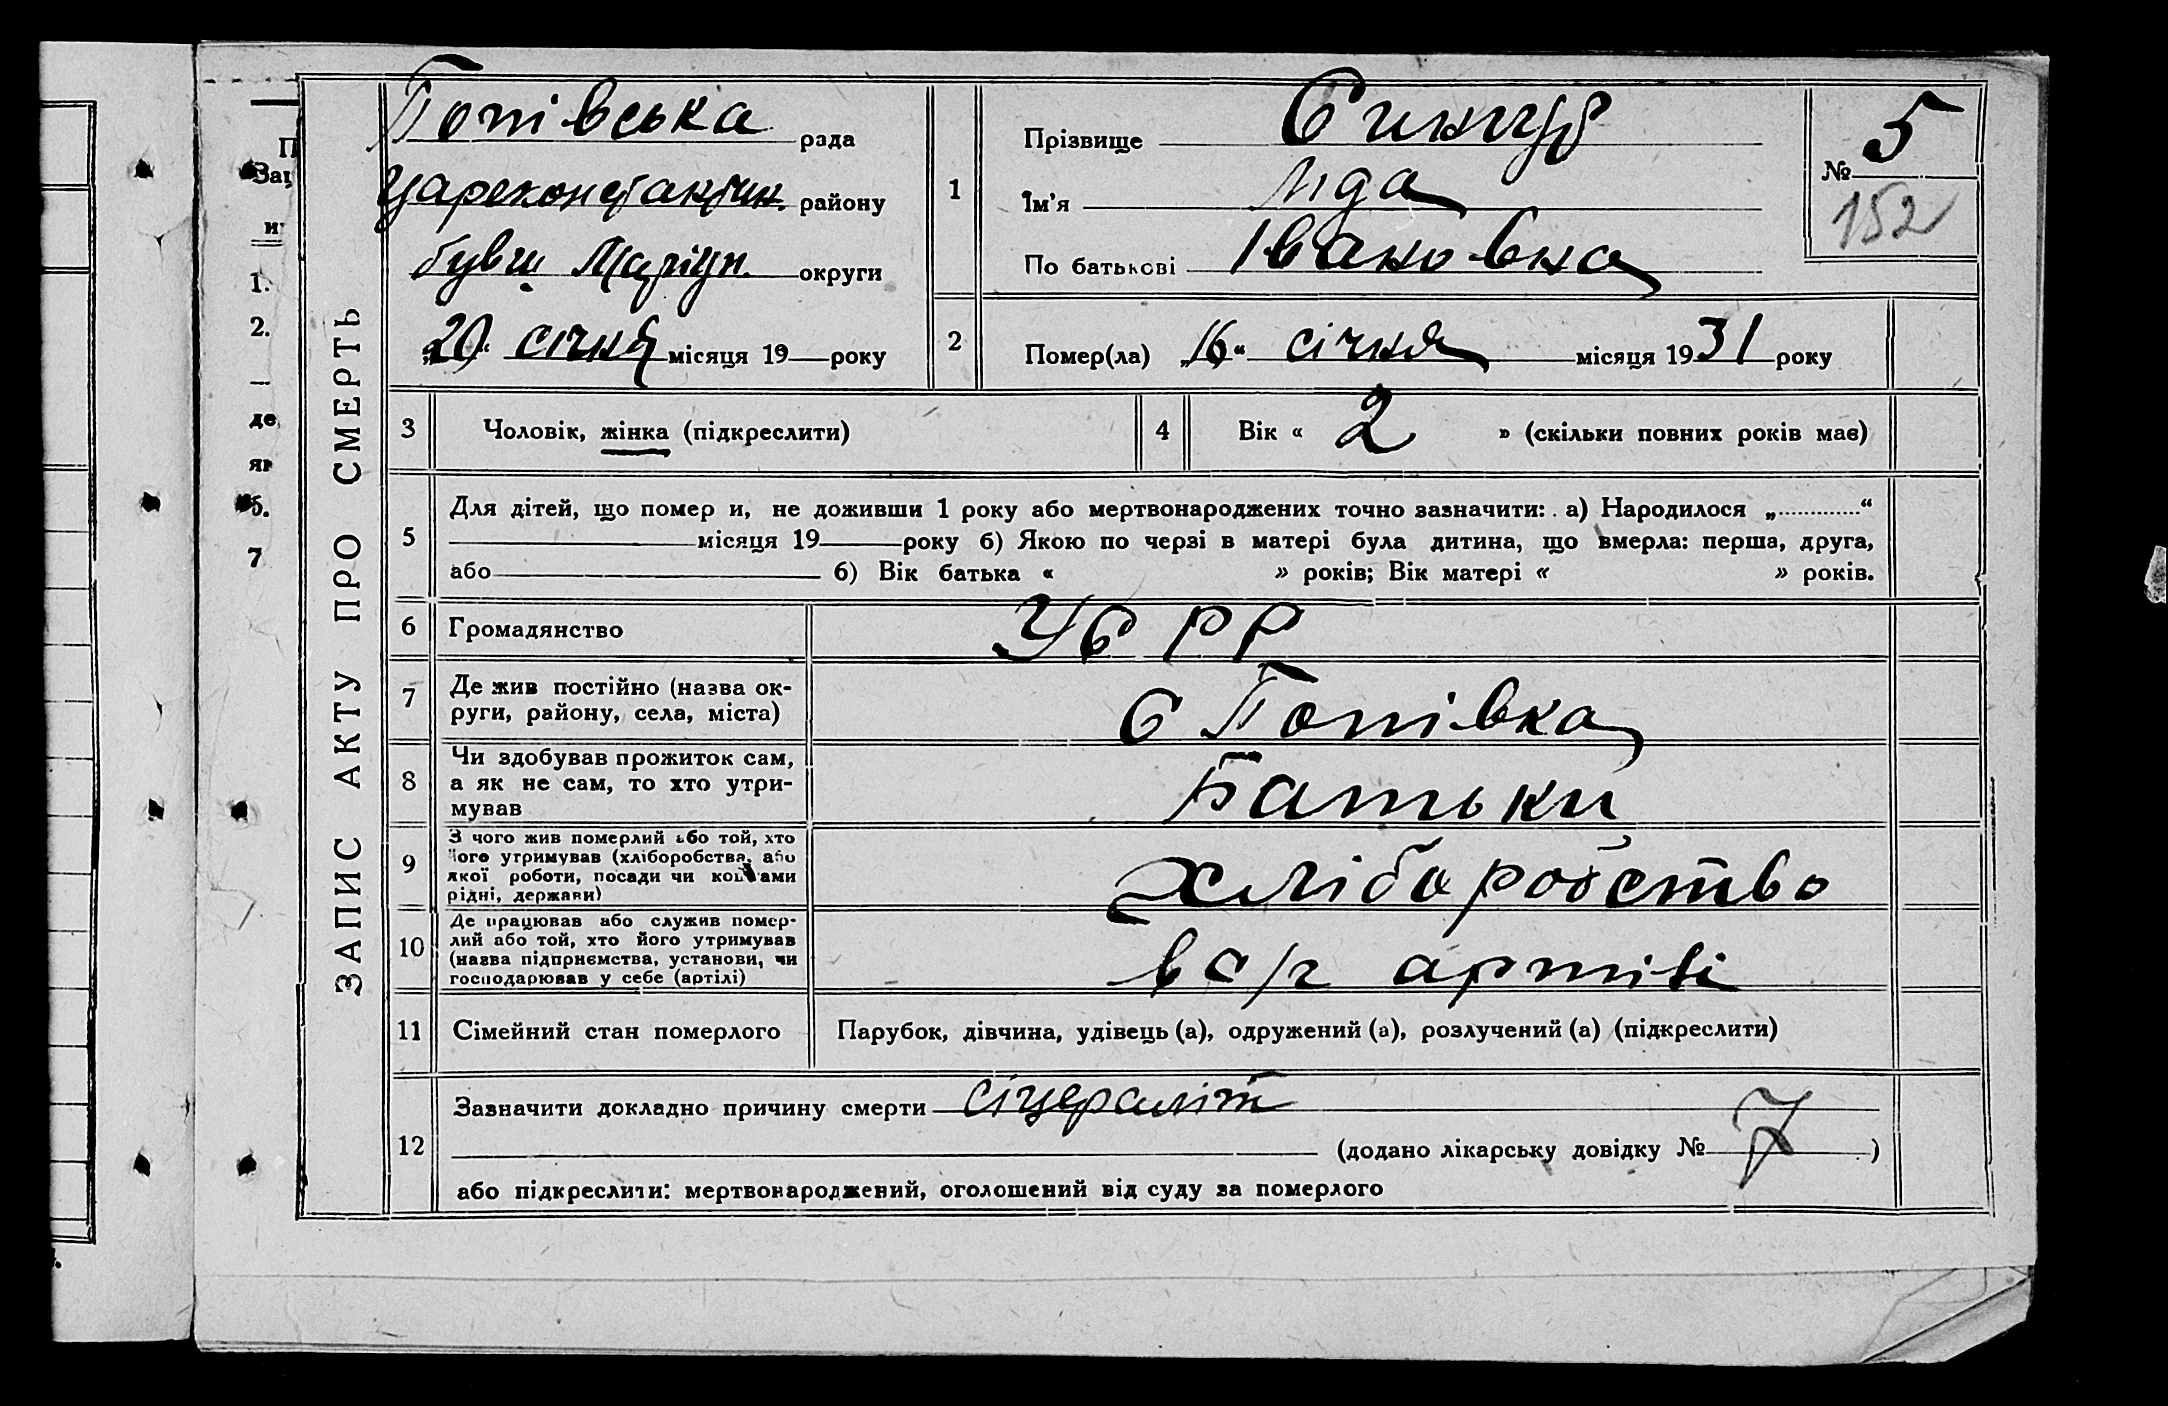 ЗАПИС АКТУ ПРО СМЕРТЬ
Попівська рада
Цареконстантин. району
бувш Маріуп. округи
„20“ січня місяця 19 року
1
Прізвище Сингур
Ім'я Ида
По батькові Івановна
№ 5
152
2
Помер(ла) „16“ січня місяця 1931 року
3 Чоловік, жінка (підкреслити)
4 Вік « 2 » (скільки повних років має)
5
Для дітей, що помер и, не доживши 1 року або мертвонароджених точно зазначити: а) Народилося „ “
місяця 19 року б) Якою по черзі в матері була дитина, що вмерла: перша, друга,
або б) Вік батька « » років; Вік матері « » років.
6 Громадянство УСРР
7 Де жив постійно (назва ок-
руги, району, села, міста) с Попівка
8 Чи здобував прожиток сам,
а як не сам, то хто утри-
мував Батьки
9 З чого жив померлий або той, хто
його утримував (хліборобства, або
якої роботи, посади чи коштами
рідні, держави) хліборобство
10 Де працював або служив помер-
лий або той, хто його утримував
(назва підприємства, установи, чи
господарював у себе (артілі) в с/г артілі
11 Сімейний стан померлого Парубок, дівчина, удівець (а), одружений (а), розлучений (а) (підкреслити)
12
Зазначити докладно причину смерти
(додано лікарську довідку № 7 )
або підкреслити: мертвонароджений, оголошений від суду за померлого
П
Зац
и
1.
2.
де
як
б.
7